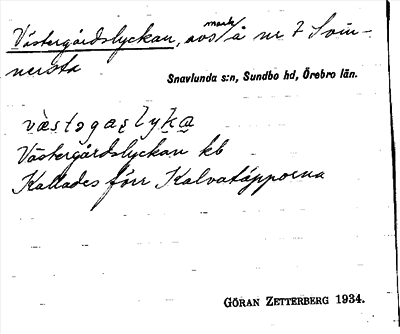 Västergårdslyckan, avs mark/å nr 7 Svin-
nersta
Snavlunda s:n, Sundbo hd, Örebro län.
Västergårdslyckan kb
Kallades förr Kalvatäpporna
GÖRAN ZETTERBERG 1934.